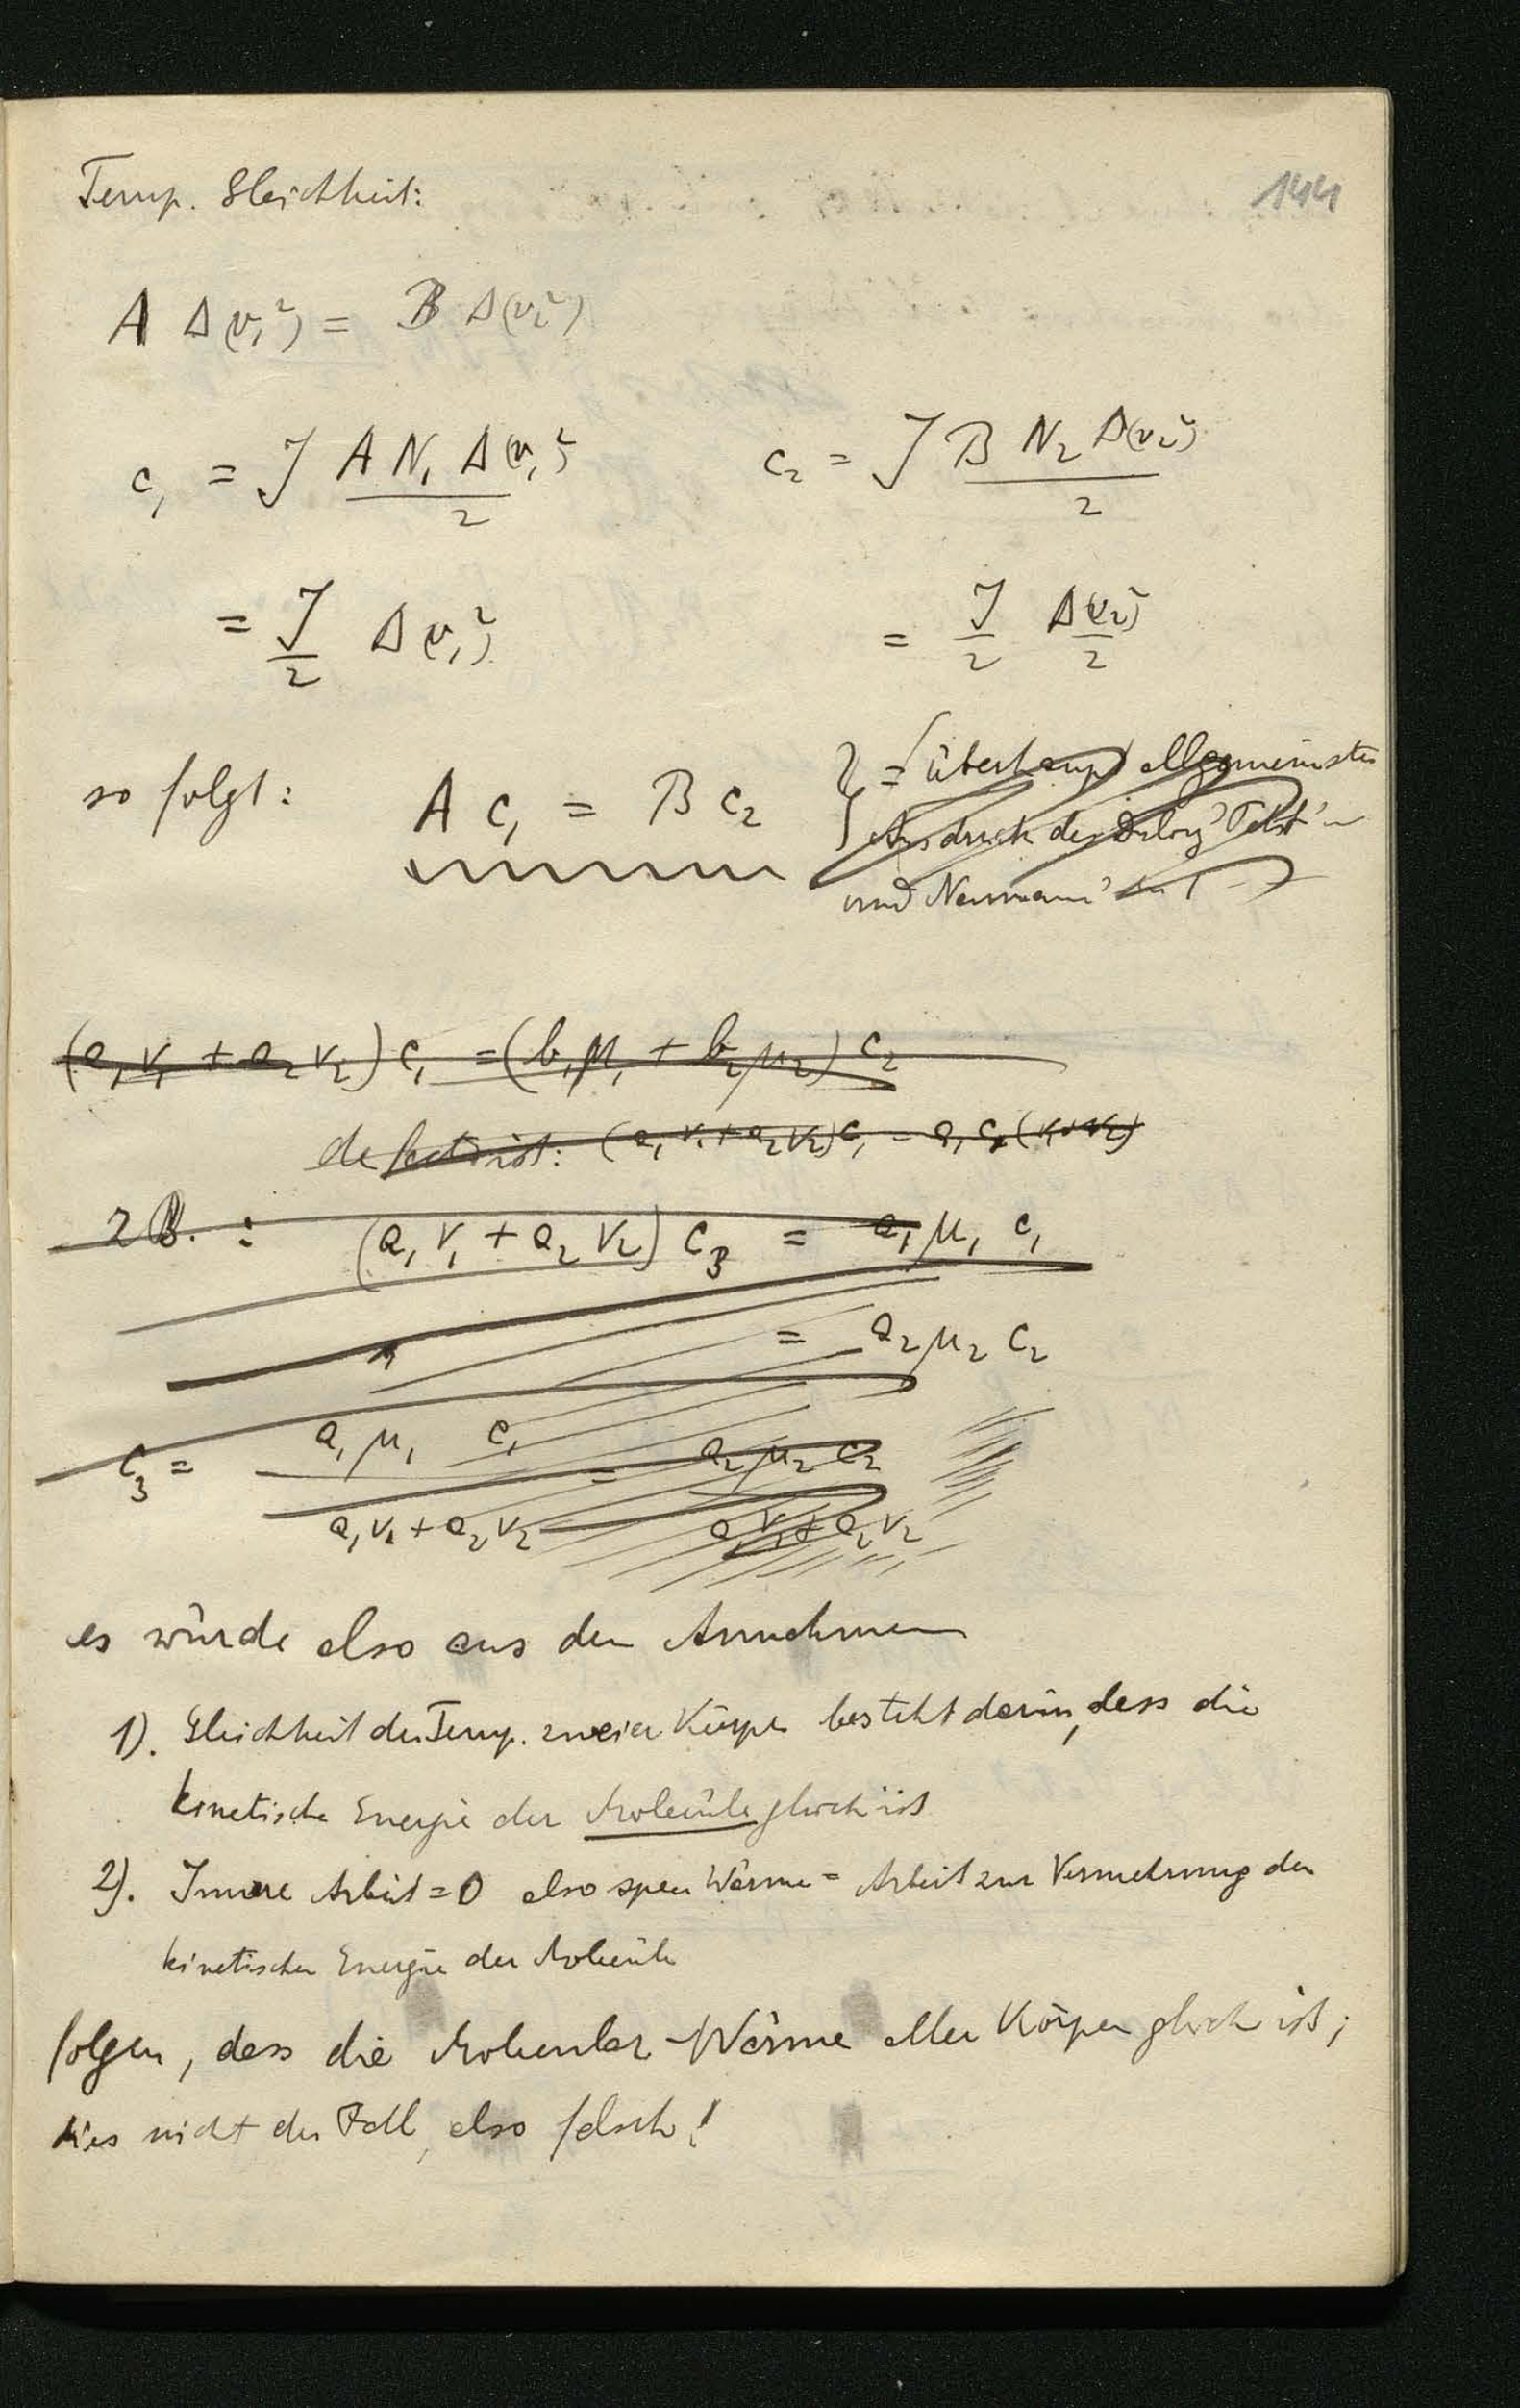 144
Temp. Gleichheit:
A Δ(v₁²) = B Δ(v₂²)
c₁ = J A N₁ Δ(v₁²) / 2    c₂ = J B N₂ Δ(v₂²) / 2
= J/2 Δ(v₁²)    = J/2 Δ(v₂²)/2
so folgt: A c₁ = B c₂ = überhaupt allgemeinster
Ausdruck des Dulong Petit'
und Neumann'
(a₁ν₁ + a₂ν₂) c₁ = (b₁μ₁ + b₂μ₂) c₂
(a₁ν₁ + a₂ν₂) c₁ = a₁ c₁ (ν₁+ν₂)
z B. : (a₁ν₁ + a₂ν₂) c₃ = a₁μ₁ c₁
= a₂μ₂ c₂
c₃ = a₁μ₁ c₁ / a₁ν₁ + a₂ν₂ = a₂μ₂ c₂ / a₁ν₁ + a₂ν₂
es würde also aus den Annahmen
1). Gleichheit der Temp. zweier Körper besteht darin, dass die
kinetische Energie der Moleküle gleich ist
2). Innere Arbeit = 0 also spec Wärme = Arbeit zur Vermehrung der
kinetischen Energie der Moleküle
folgen, dass die Molecular-Wärme aller Körper gleich ist;
dies nicht der Fall, also falsch!